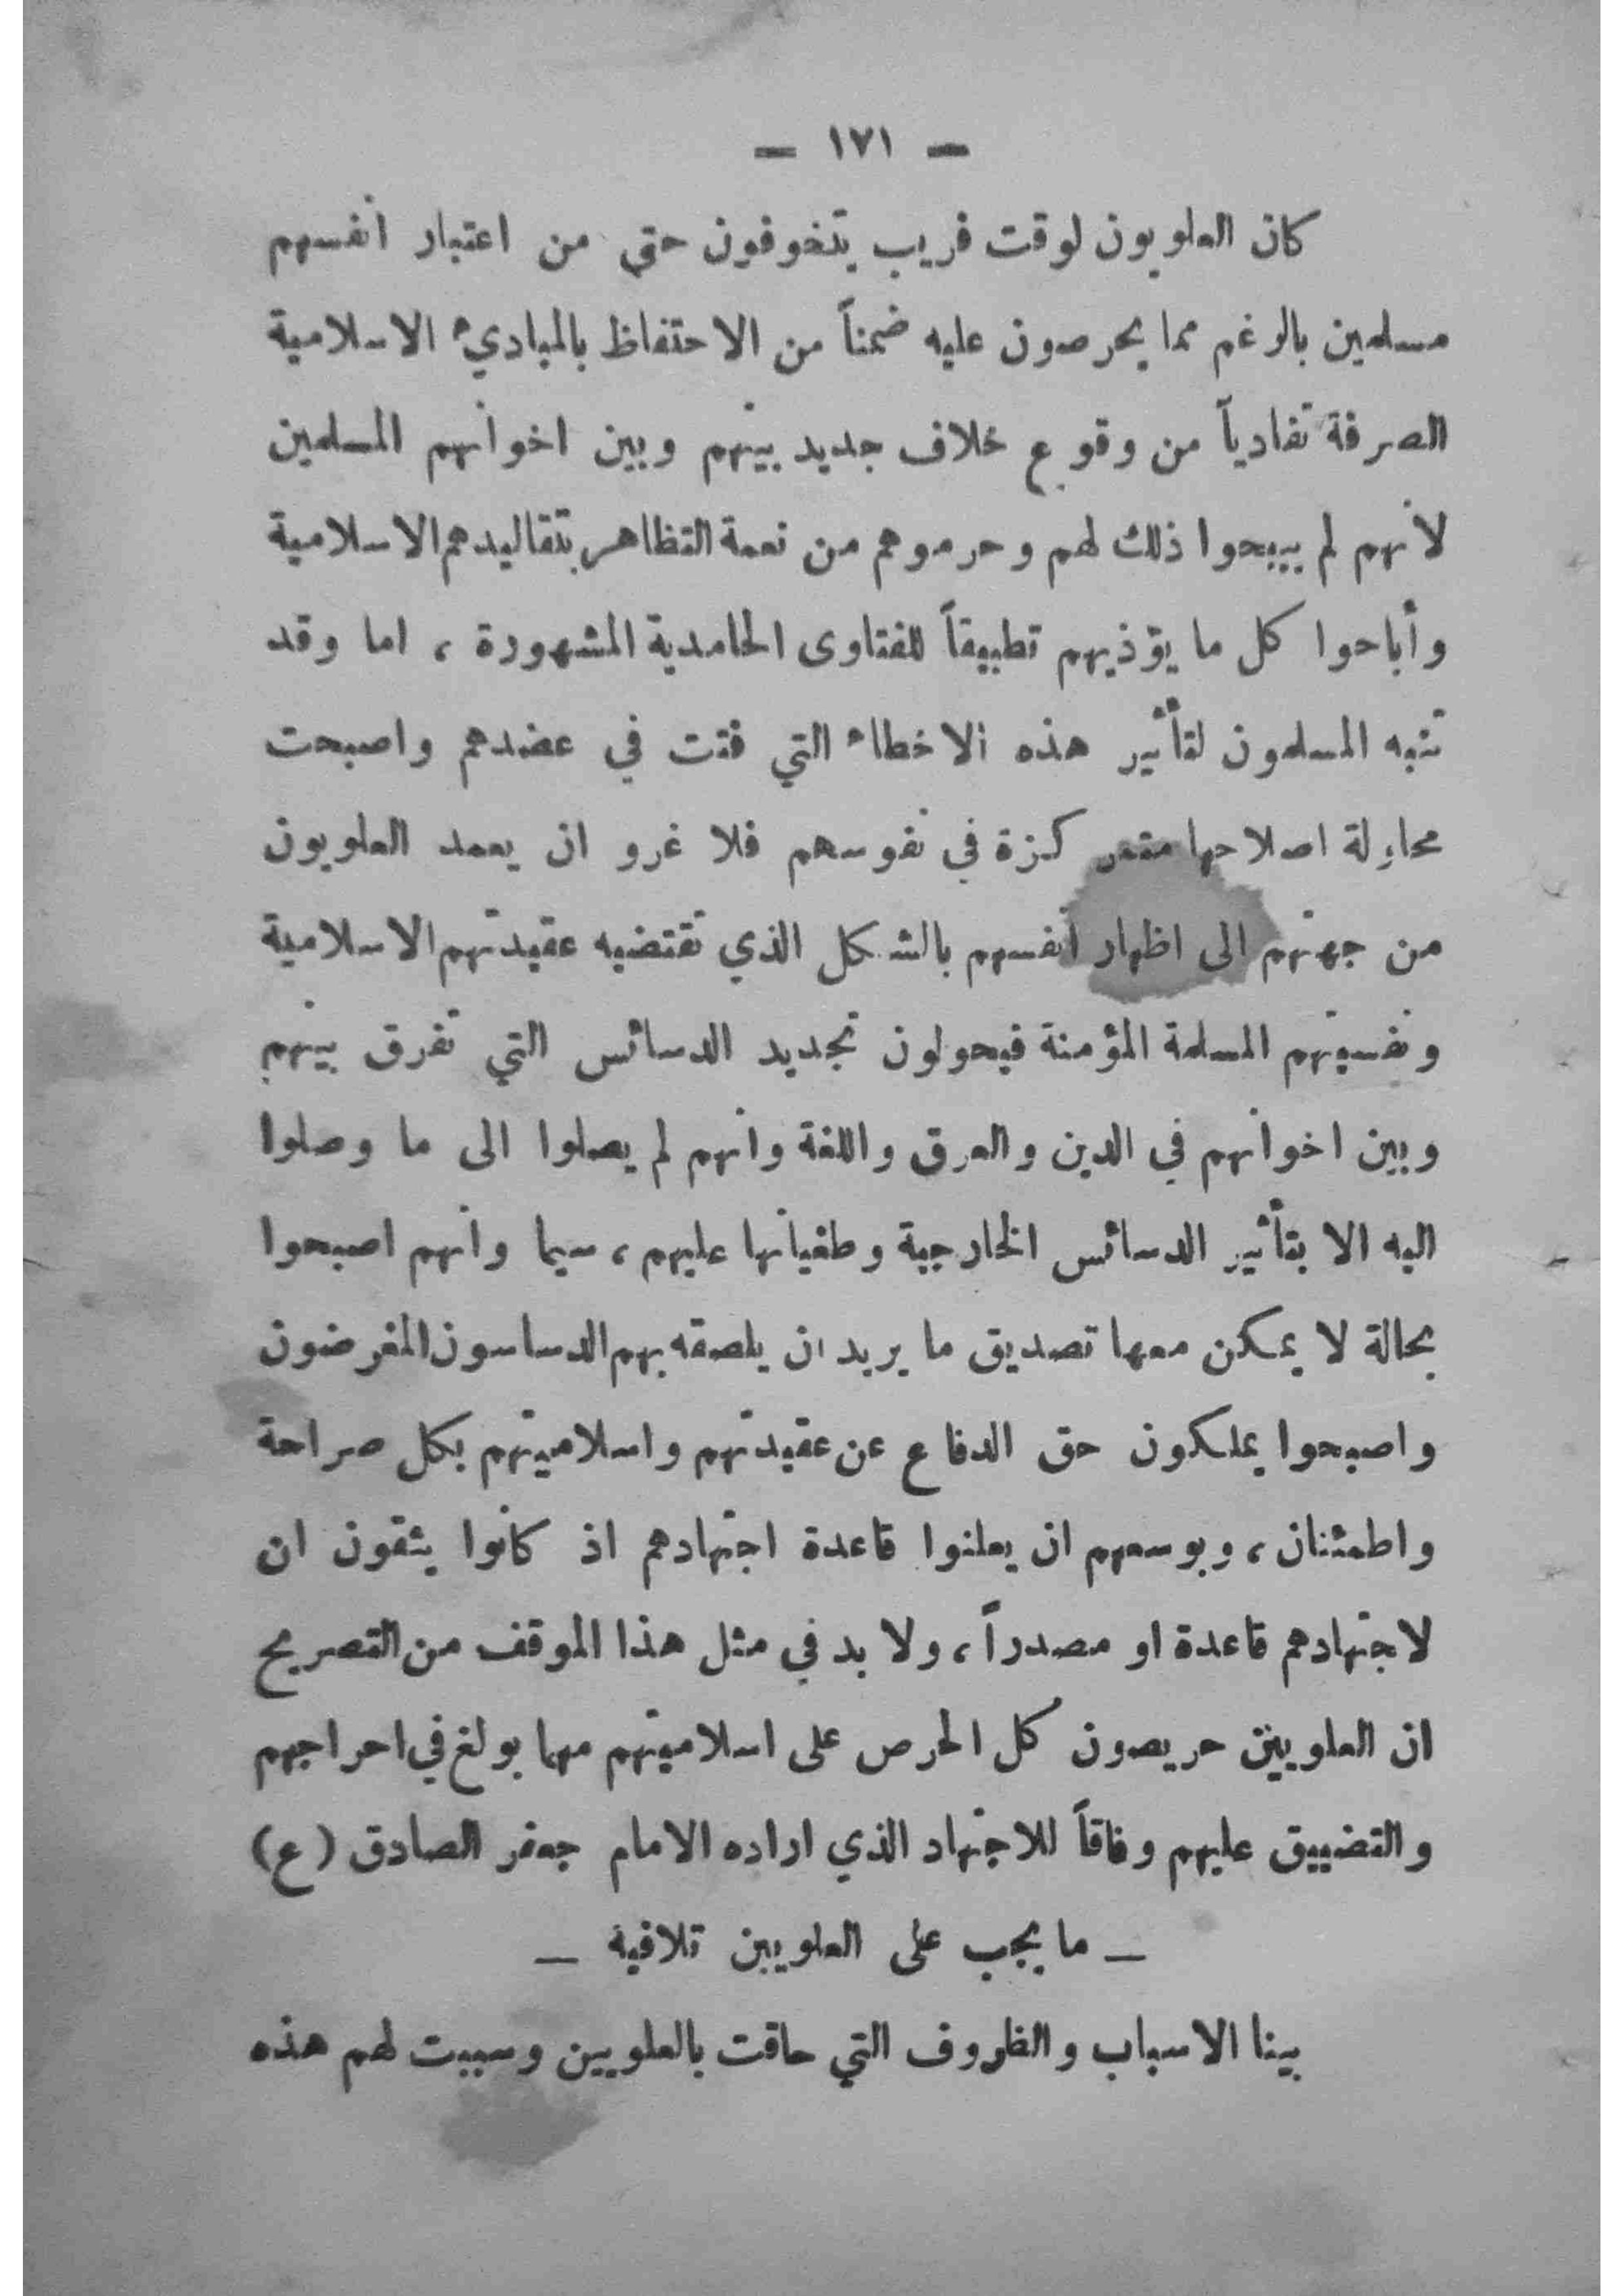 — ١٧١ —
كان العلويون لوقت قريب يتخوفون حتى من اعتبار انفسهم
مسلمين بالرغم مما يحرصون عليه ضمناً من الاحتفاظ بالمباديء الاسلامية
الصرفة تفادياً من وقوع خلاف جديد بينهم وبين اخوانهم المسلمين
لأنهم لم يبيحوا ذلك لهم وحرموهم من نعمة التظاهر بتقاليدهم الاسلامية
وأباحوا كل ما يؤذيهم تطبيقاً للفتاوى الحامدية المشهورة ، اما وقد
تنبه المسلمون لتأثير هذه الاخطاء التي فتت في عضدهم واصبحت
محاولة اصلاحها متمركزة في نفوسهم فلا غرو ان يعمد العلويون
من جهتهم الى اظهار انفسهم بالشكل الذي تقتضيه عقيدتهم الاسلامية
ونفسيتهم المسلمة المؤمنة فيحولون تجديد الدسائس التي تفرق بينهم
وبين اخوانهم في الدين والعرق واللغة وانهم لم يصلوا الى ما وصلوا
اليه الا بتأثير الدسائس الخارجية وطغيانها عليهم ، سيما وانهم اصبحوا
بحالة لا يمكن معها تصديق ما يريد ان يلصقه بهم الدساسون المغرضون
واصبحوا يملكون حق الدفاع عن عقيدتهم واسلاميتهم بكل صراحة
واطمئنان ، وبوسعهم ان يعلنوا قاعدة اجتهادهم اذ كانوا يثقون ان
لاجتهادهم قاعدة او مصدراً ، ولا بد في مثل هذا الموقف من التصريح
ان العلويين حريصون كل الحرص على اسلاميتهم مهما بولغ في احراجهم
والتضييق عليهم وفاقاً للاجتهاد الذي اراده الامام جعفر الصادق (ع)
— ما يجب على العلويين تلافيه —
بينا الاسباب والظروف التي حاقت بالعلويين وسببت لهم هذه